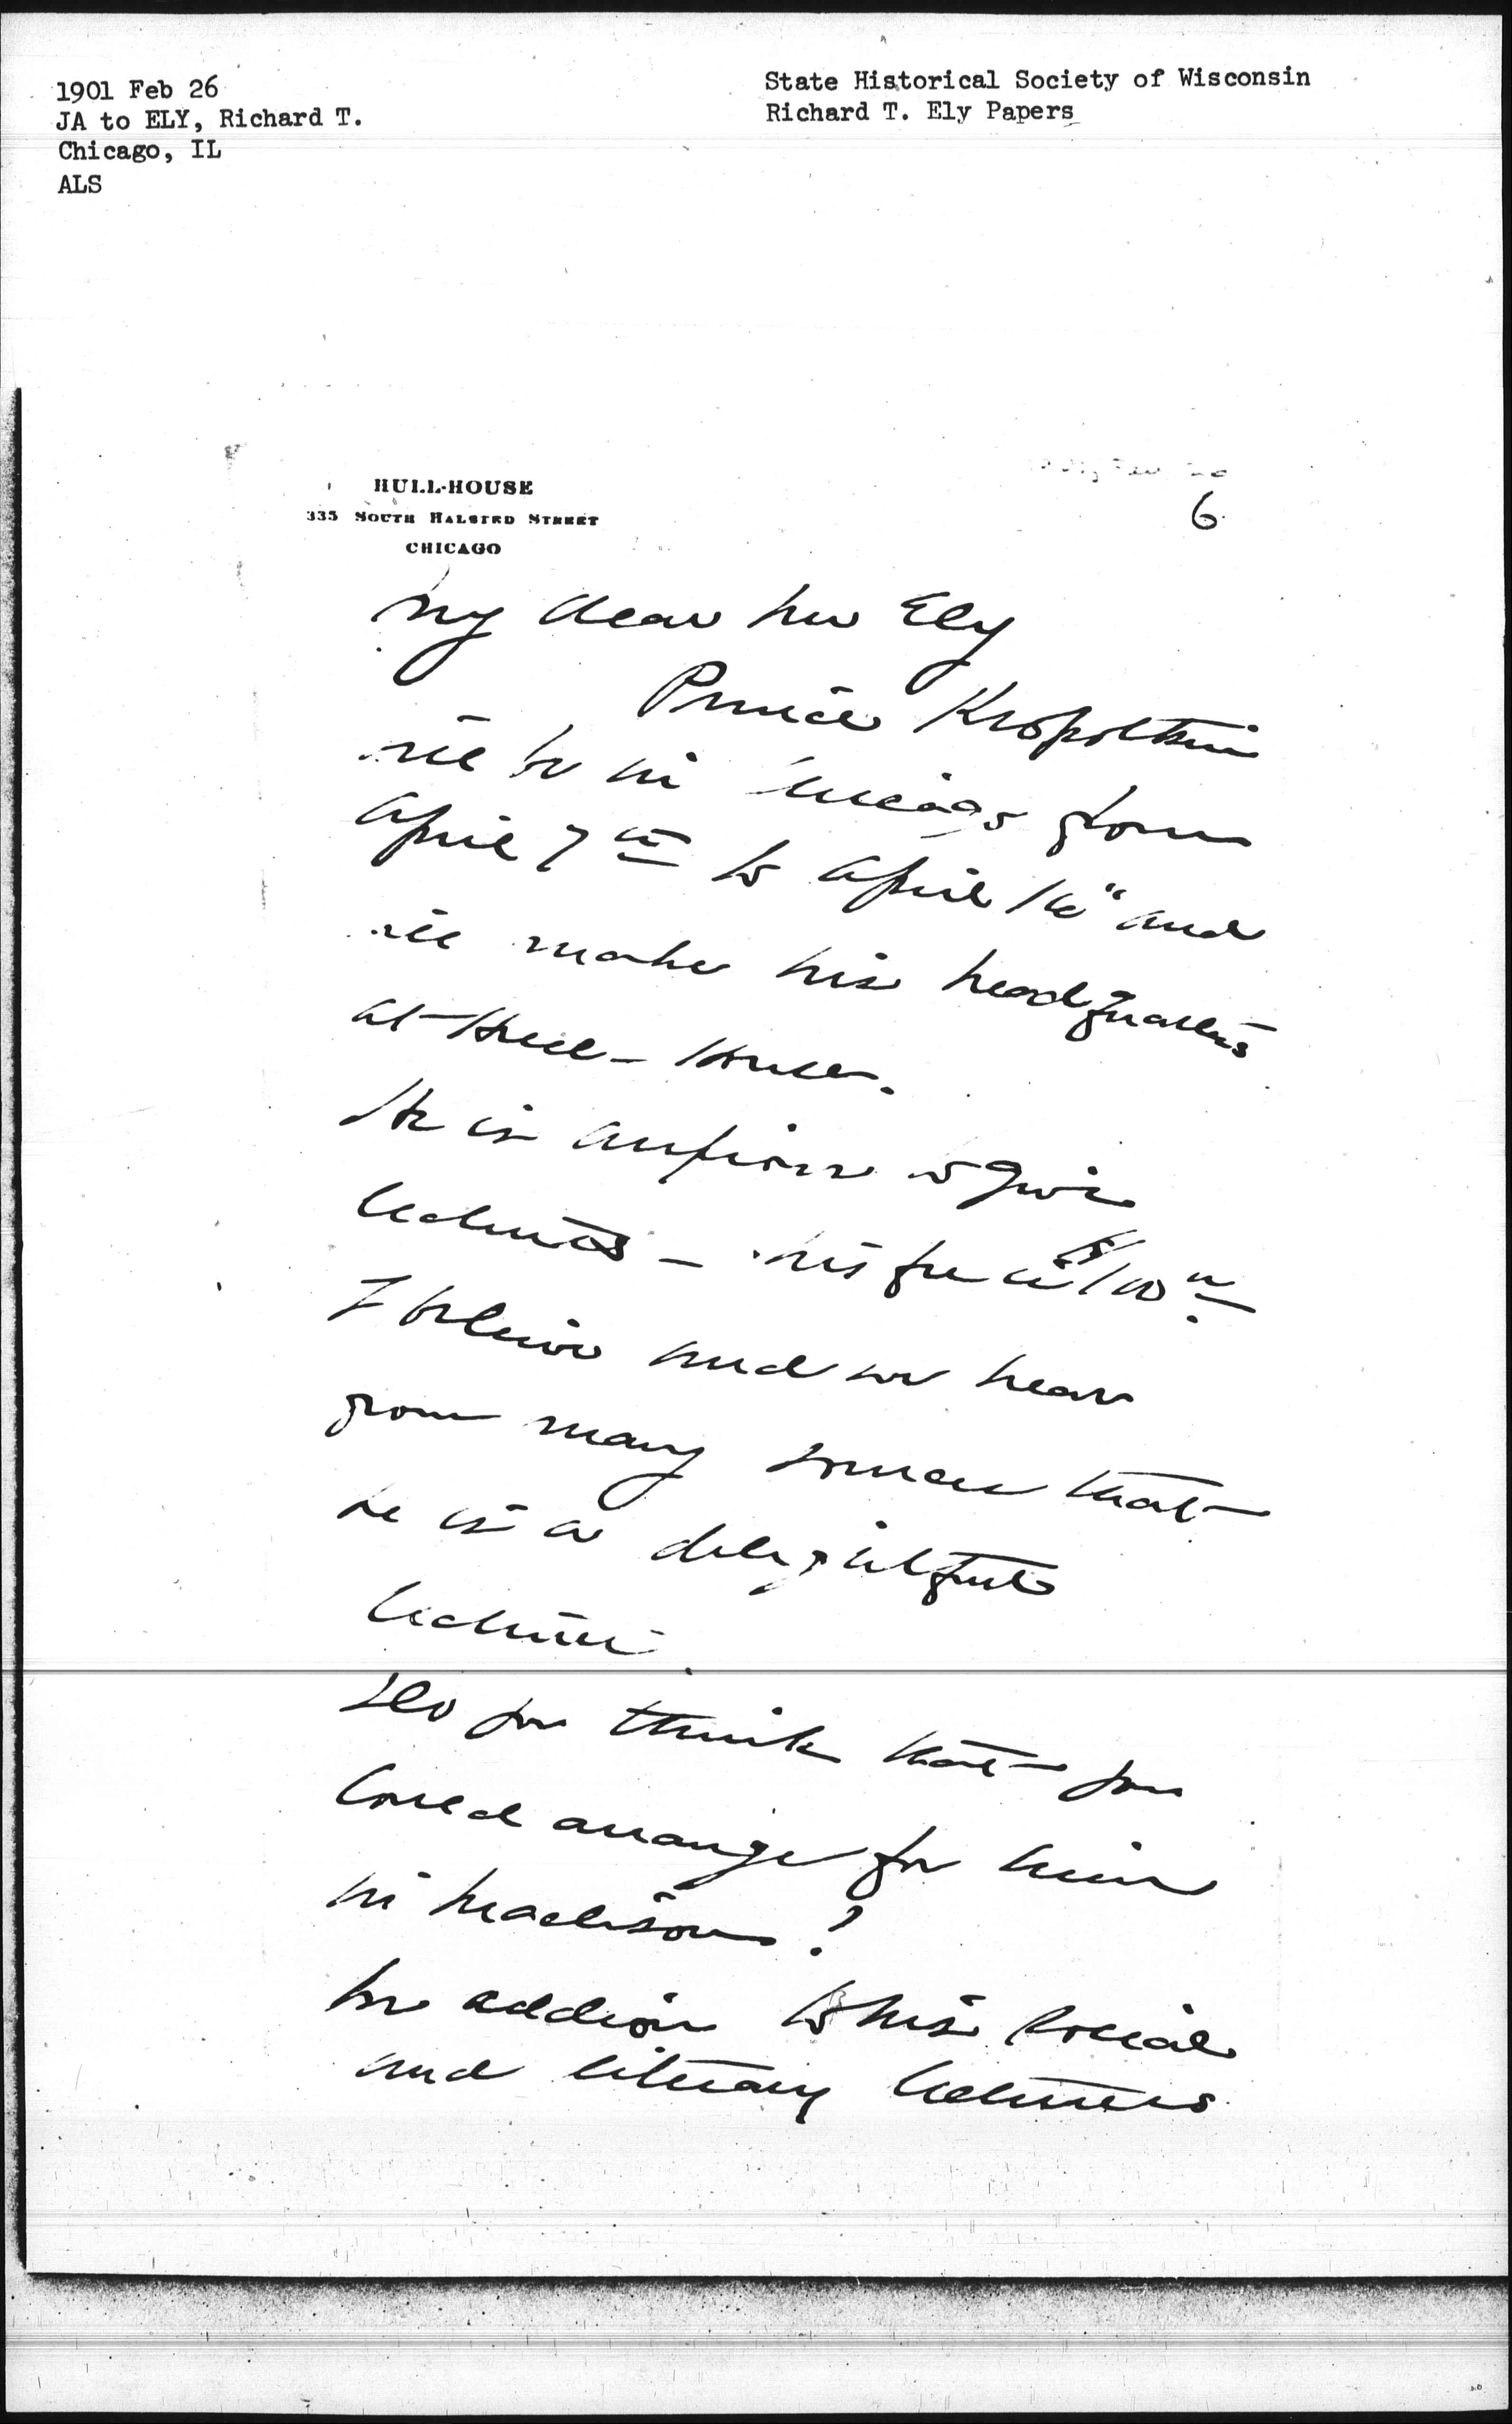 1901 Feb 26
JA to ELY, Richard T.
Chicago, IL
ALS
State Historical Society of Wisconsin
Richard T. Ely Papers
HULL-HOUSE
335 South Halsted Street
CHICAGO
6
My dear Mr Ely
Prince Kropotkin
will be in Chicago from
April 7th to April 16" and
will make his headquarters
at Hull-House.
He is anxious to give
lectures — his fee is $100
I believe and we hear
from many sources that
he is a delightful
lecturer.
Do you think that you
could arrange for him
in Madison?
In addion to his social
and literary lectures